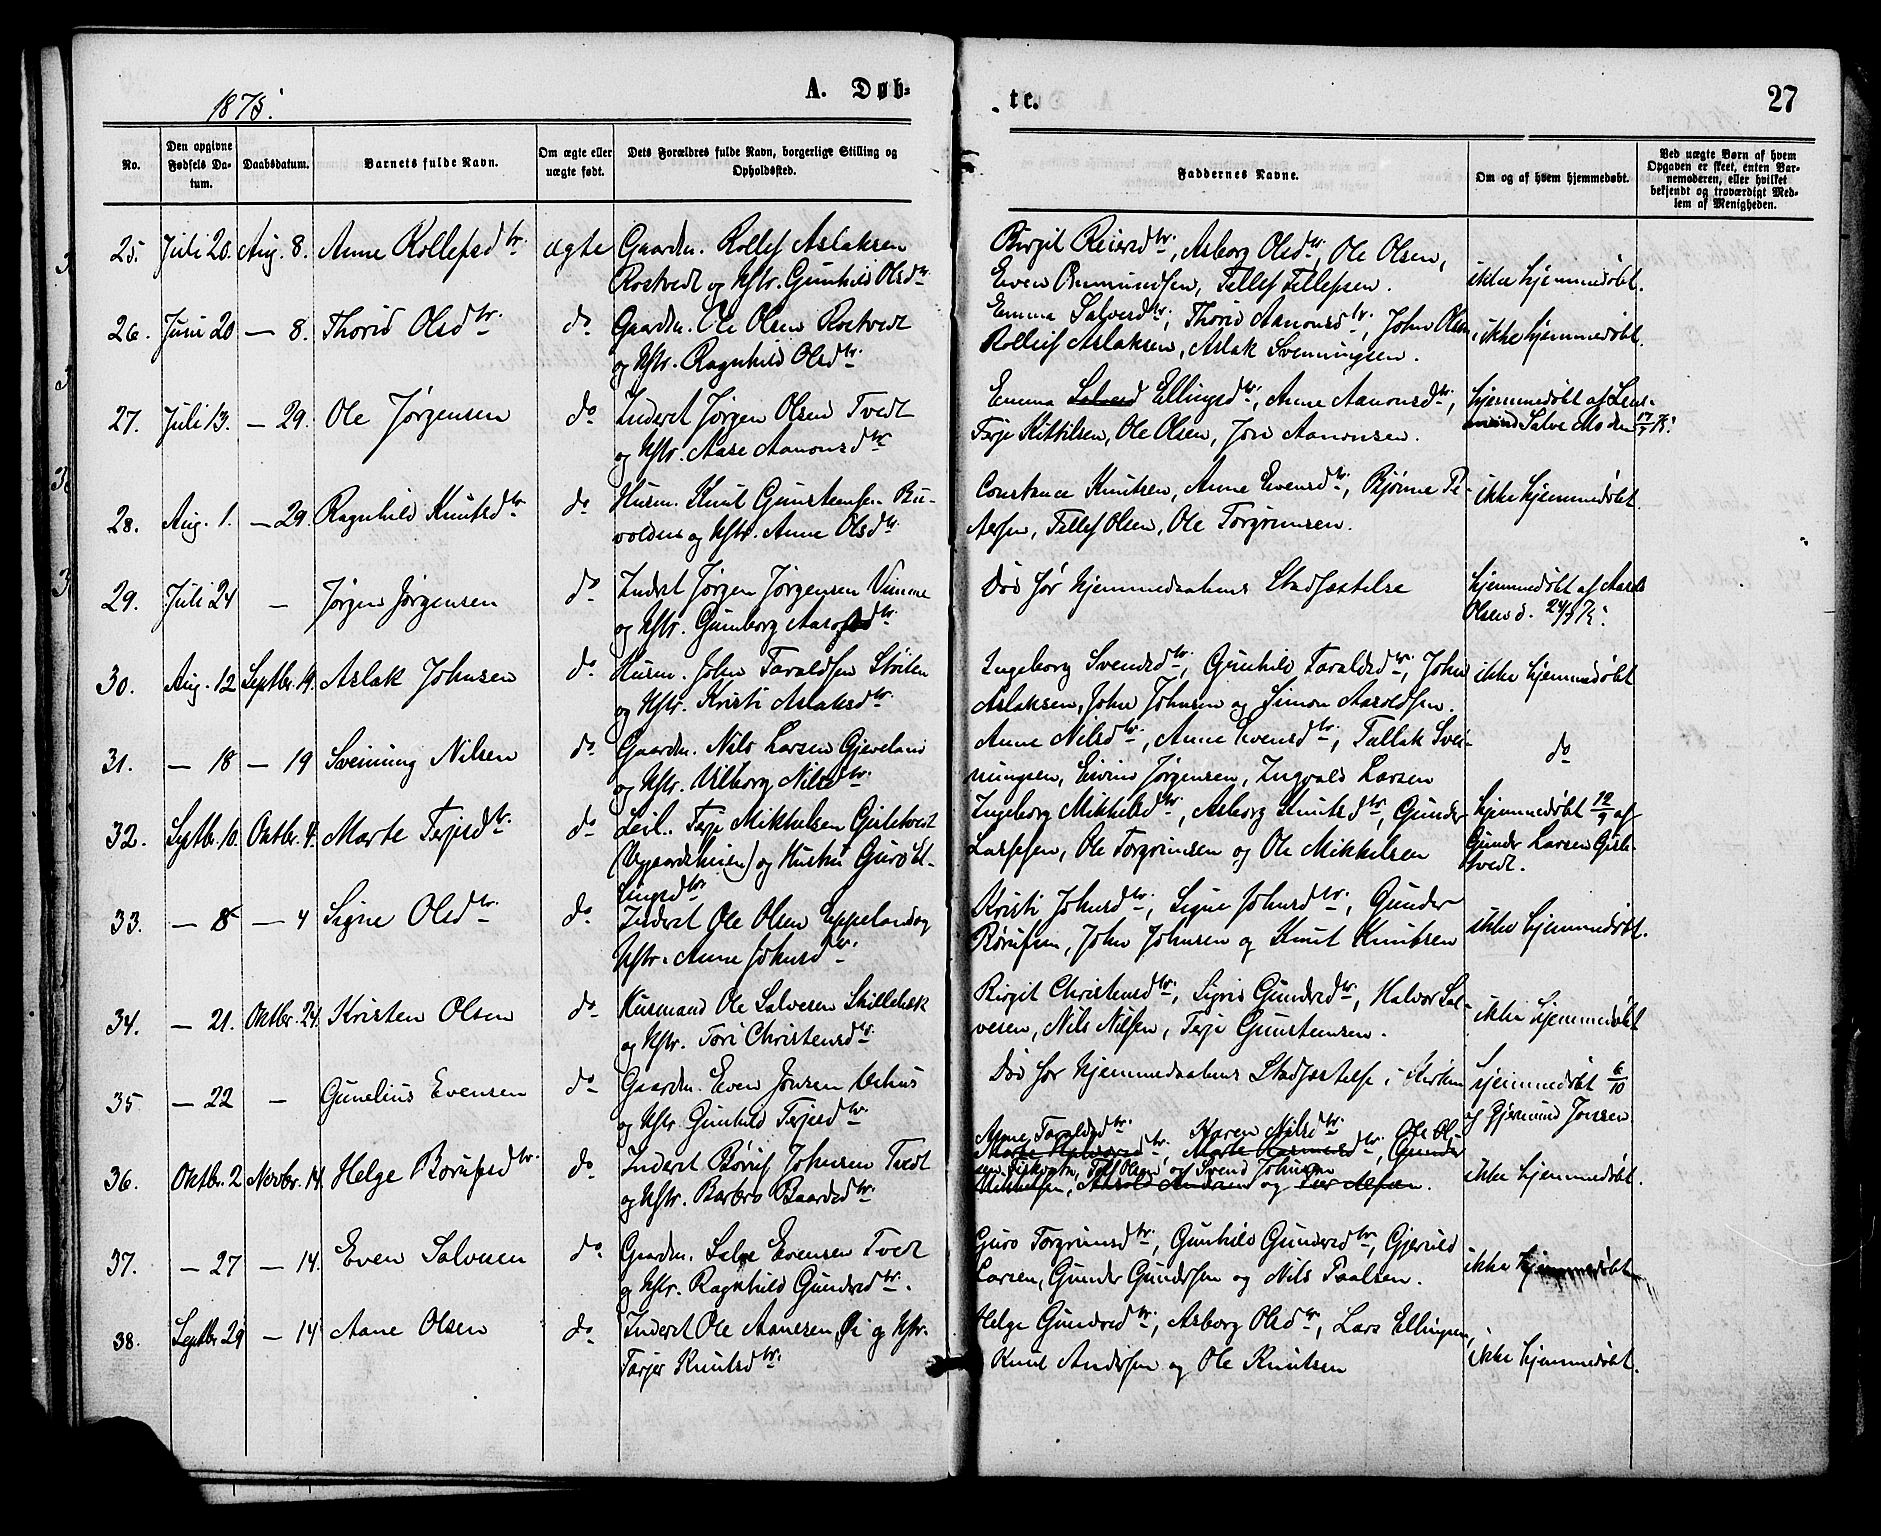 1875.
A. Døb-
te.
27
No.
Den opgivne Fødsels Da-tum.
Daabsdatum.
Barnets fulde Navn.
Om ægte eller uægte født.
Dets Forældres fulde Navn, borgerlige Stilling og Opholdssted.
Faddernes Navne.
Om og af hvem hjemmedøbt.
Ved uægte Børn af hvem Opgaven er skeet, enten Bar-nemoderen, eller hvilket bekjendt og troværdigt Med-lem af Menigheden.
25. Juli 20. Aug. 8. Anne Rollefsdtr. ægte Gaardm. Rollef Aslaksen
Rostvedt og Hstr. Gunhild Olsdtr.
Birgit Reiersdtr., Asborg Olsdtr., Ole Olsen,
Even Osmundsen, Tellef Tellefsen.
ikke hjemmedøbt.
26. Juni 20 — 8. Thorid Olsdtr. do Gaardm. Ole Olsen Rostvedt
og Hstr. Ragnhild Olsdtr.
Emma Salvesdtr., Thorid Aanonsdtr., John Olsen
Rolleif Aslaksen, Aslak Svenningsen.
ikke hjemmedøbt.
27. Juli 13. — 29. Ole Jørgensen do Inderst Jørgen Olsen Tvedt
og Hstr. Aase Aanonsdtr
Emma Salvesd Ellingsdtr., Anne Aanonsdtr.,
Terje Kittilsen, Ole Olsen, Jon Aanonsen.
hjemmedøbt af Lens-
mand Salve Mo den 17/7 75.
28. Aug. 1. — 29. Ragnhild Knutsdtr do Husm. Knut Gunstensen Bu-
volden og Hstr. Anne Olsdtr.
Constance Knutsen, Anne Evensdtr., Bjørne Pe-
dersen, Tellef Olsen, Ole Torgrimsen.
ikke hjemmedøbt.
29. Juli 24 — Jørgen Jørgensen do Inderst Jørgen Jørgensen Vimme
og Hstr. Gunborg
Død før Hjemmedaabens Stadfæstelse
hjemmedøbt af
Olsen d. 24/7 75.
30. Aug. 12 Septbr. 19. Aslak Johnsen do Husm. John Taraldsen
og Hstr. Kristi Aslaksdtr.
Ingeborg Svensdtr., Gunhild Taraldsdtr., John
Aslaksen, John Johnsen og Simon Aaroldsen.
ikke hjemmedøbt
31. — 18 — 19 Svenning Nilsen do Gaardm. Nils Larsen Gjeveland
og Hstr. Vilborg Nilsdtr.
Anne Nilsdtr., Anne Evensdtr., Tallak Sven-
ningsen, Eivind Jørgensen, Ingvald Larsen
do
32. Septbr. 10. Oktbr. 4. Marte Terjesdtr. do Leil. Terje Mikkelsen Gjelstvedt
(Rygaardsheien) og Hustru Guro El-
lingsdtr
Ingeborg Mikkelsdtr., Asborg Knutsdtr., Gunder
Larsen, Ole Torgrimsen og Ole Mikkelsen
hjemmedøbt 12/9 af
Gunder Larsen Gjels-
tvedt.
33. — 8 — 4 Signe Olsdtr. do Inderst Ole Olsen Eppeland og
Hstr. Anne Johnsdtr.
Kristi Johnsdtr., Signe Johnsdtr., Gunder
Børufsen, John Johnsen og Knut Knutsen
ikke hjemmedøbt.
34. — 21. Oktbr. 24. Kristen Olsen do Husmand Ole Salvesen Skillebæk
og Hstr. Tori Christensdtr.
Birgit Christensdtr., Sigrid Gundersdtr., Halvor Sal-
vesen, Nils Nilsen, Terje Gunstensen.
ikke hjemmedøbt
35 — 22 — Gunelius Evensen do Gaardm. Even Jonsen Vehus
og Hstr. Gunhild Terjesdtr
Død før Hjemmedaabens Stadfæstelse i Kirken
hjemmedøbt 6/10
af Gjermund Jonsen.
36. Oktbr. 2 Novbr. 14. Helge Børufsdtr. do Inderst Børuf Johnsen Tvedt
og Hstr. Barbro Baardsdtr.
Anne Taraldsdtr., Karen Nilsdtr., Ole Ol-
sen Fiskvatn, Tellef Olsen og Svend Johnsen
ikke hjemmedøbt.
37. — 27 — 14. Even Salvesen do Gaardm. Salve Evensen Tvedt
og Hstr. Ragnhild Gundersdtr.
Guro Torgrimsdtr., Gunhild Gundersdtr, Gjeruld
Larsen, Gunder Gundersen og Nils Paalsen.
ikke hjemmedøbt
38. Septbr 29 — 14 Aane Olsen do Inderst Ole Aanesen Øi og Hstr.
Tarjer Knutsdtr.
Helge Gundersdtr., Asborg Olsdtr., Lars Ellingsen,
Knut Andersen og Ole Knutsen
ikke hjemmedøbt.